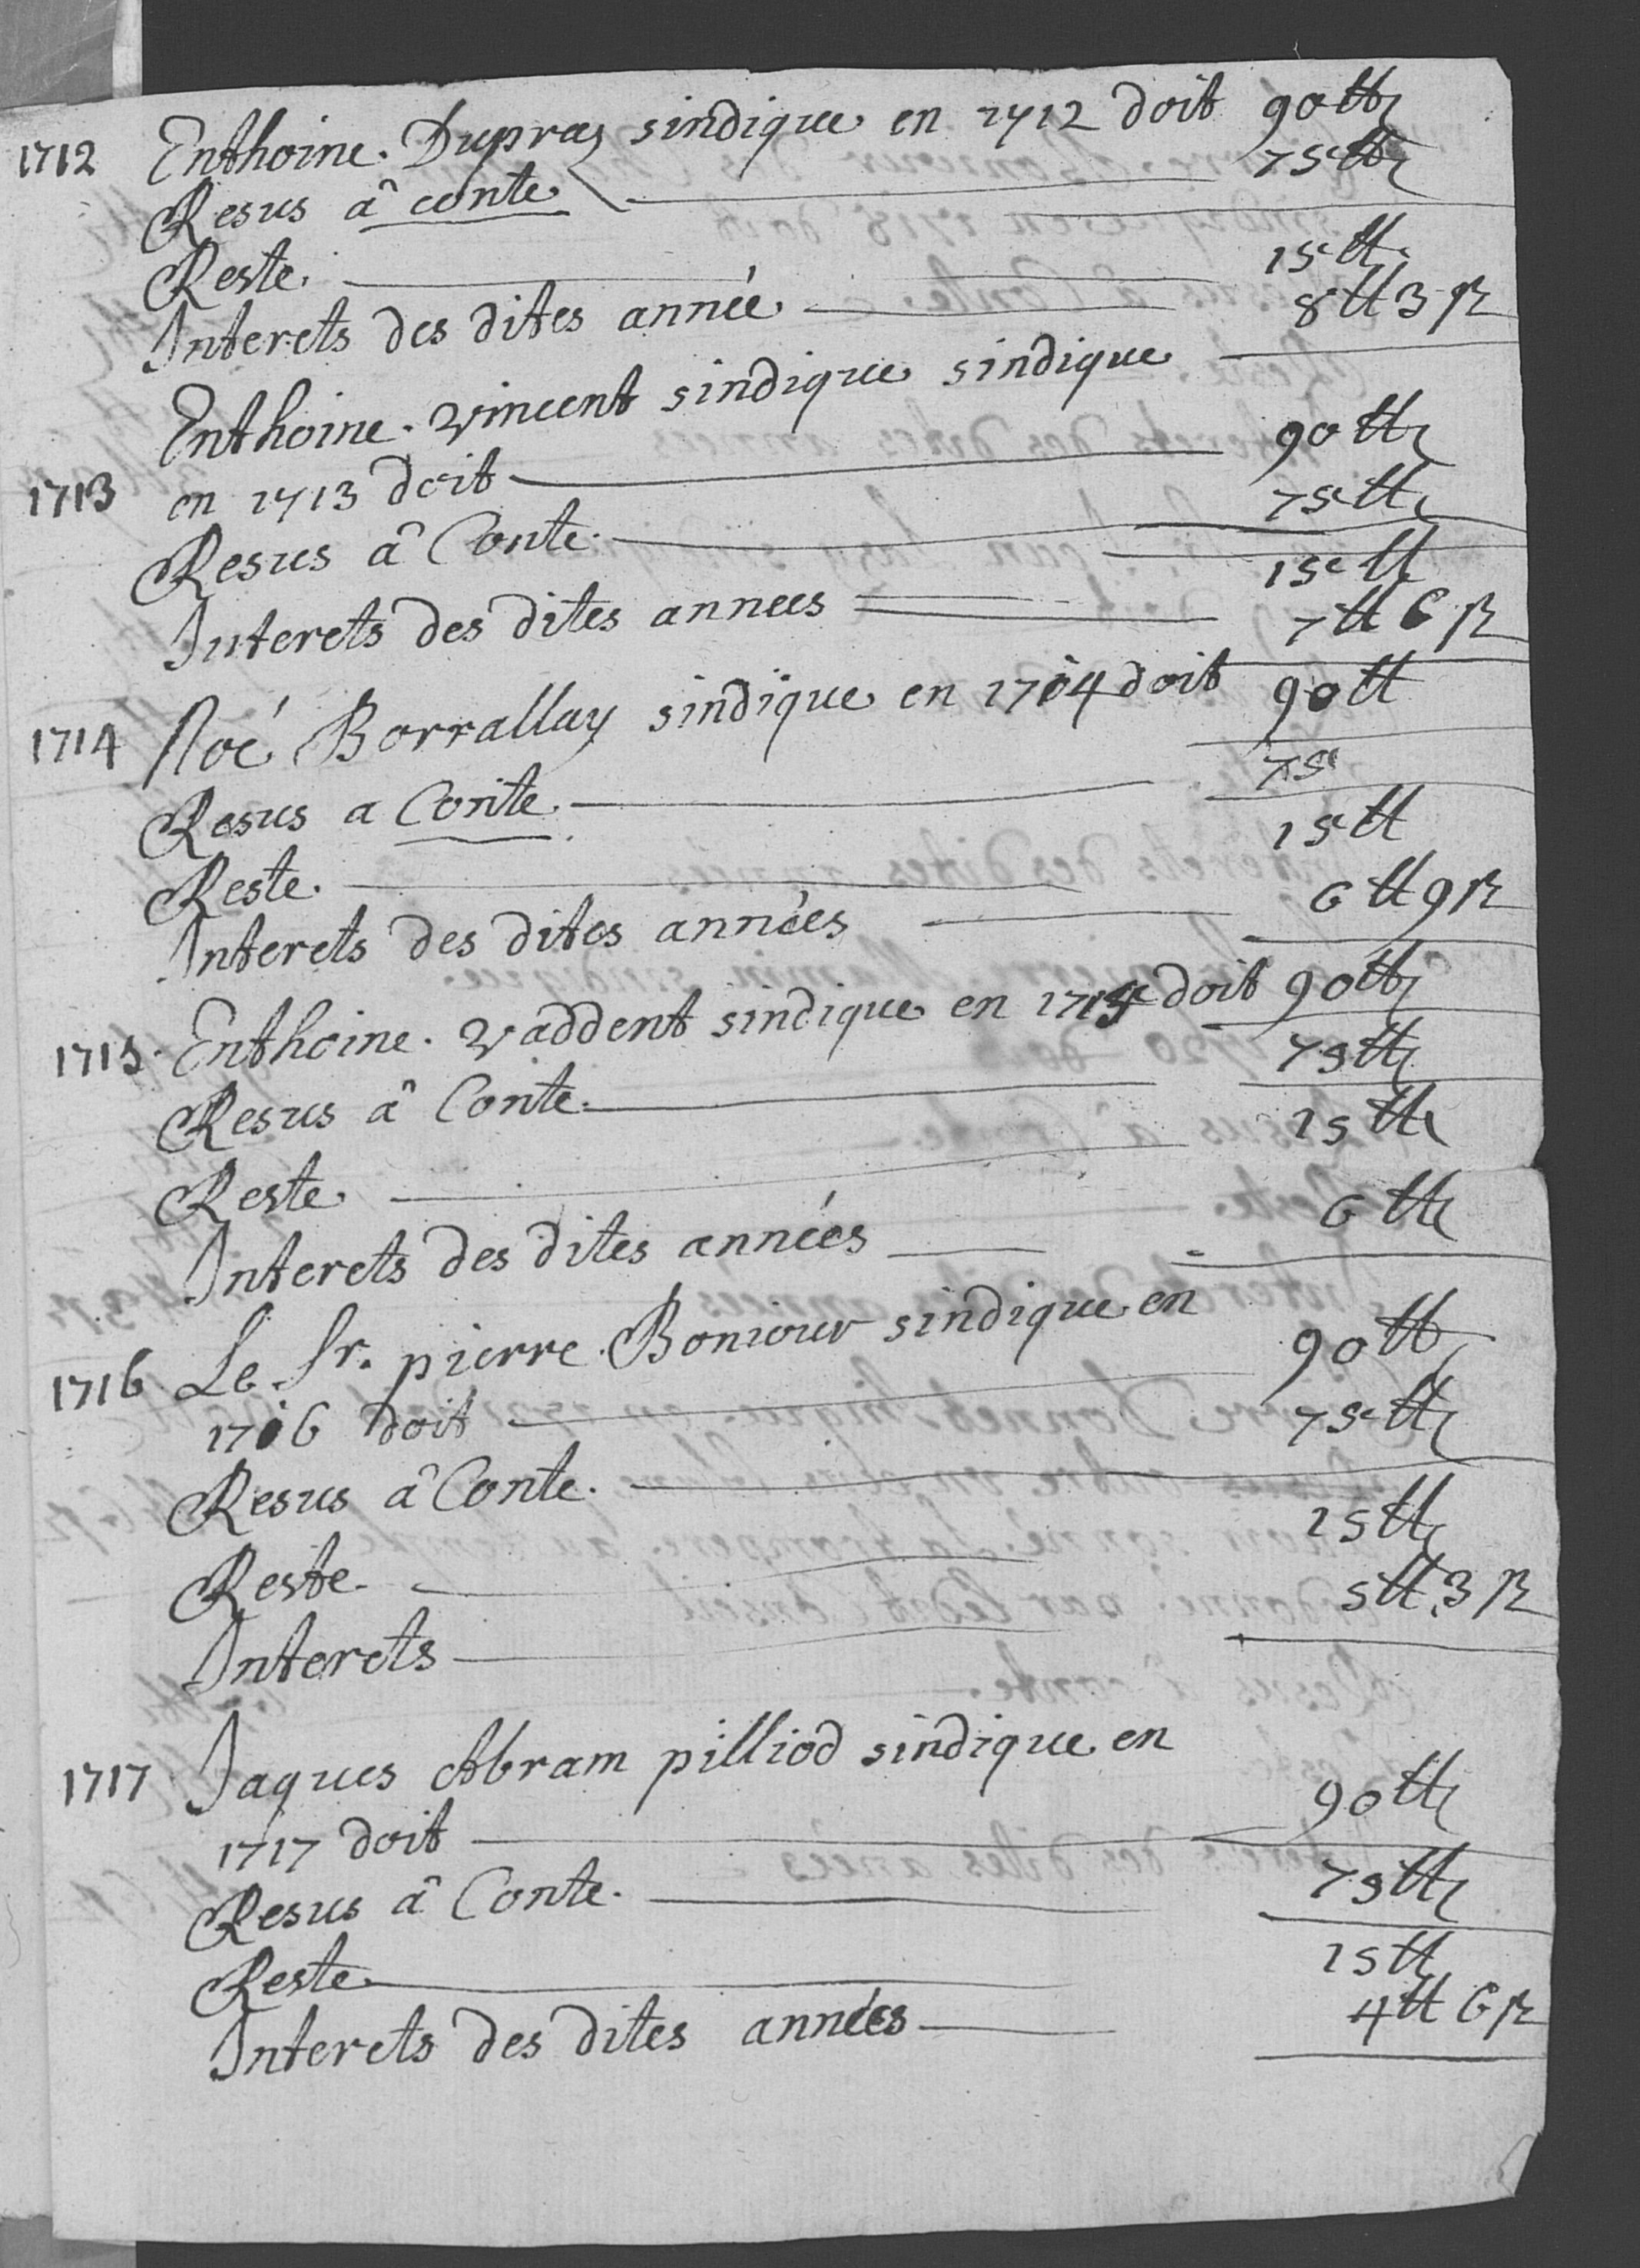 1712 Enthoine. Dupraz sindique en 1712 doit 90 ₶
Resus â conte 75 ₶
Reste. 15 ₶
Interets des dites année 8 ₶ 3 ß
Enthoine. vincent sindique sindique
1713 en 1713 doit 90 ₶
Resus â Conte. 75 ₶
15 ₶
Interets des dites annees 7 ₶ 6 ß
1714 Noé Borrallay sindique en 1714 doit 90 ₶
Resus a Conte. 75
Reste. 15 ₶
Interets des dites années 6 ₶ 9 ß
1715. Enthoine. vaddent sindique en 1715 doit 90 ₶
Resus â Conte. 75 ₶
Reste. 15 ₶
Interets des dites années 6 ₶
1716 Le Sr. pierre Boniour sindique en
1716 doit 90 ₶
Resus â Conte. 75 ₶
Reste. 15 ₶
Interets 5 ₶ 3 ß
1717 Jaques Abram pilliod sindique en
1717 doit 90 ₶
Resus â Conte. 75 ₶
Reste 15 ₶
Interets des dites années 4 ₶ 6 ß